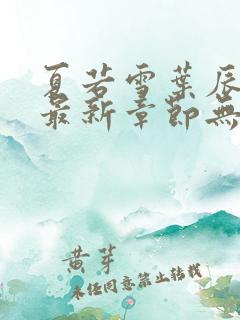 夏若雪葉辰
最新章節無
黄芽
未经同意禁止转载